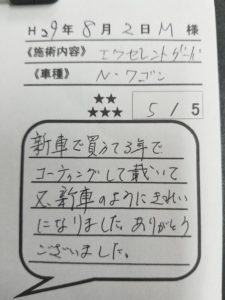 H29年8月2日M様
《施術内容》エクセレントガード
《車種》N・ワゴン
★★
★★★
5/5
新車で買って3年で
コーティングして戴いて
又、新車のようにきれい
になりました。ありがとう
ございました。